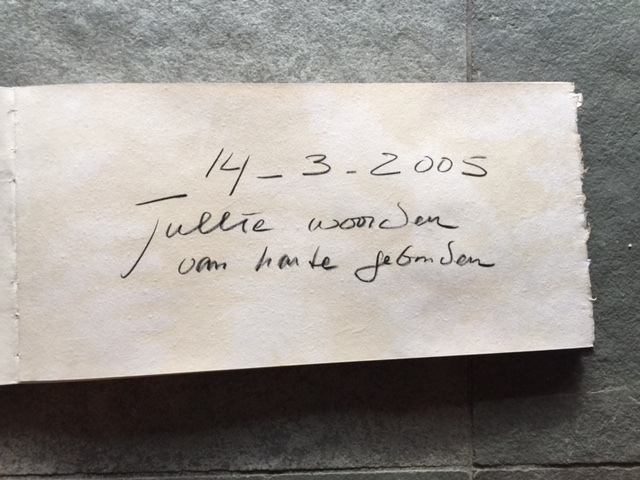 14-3-2005
Jullie woorden
van harte gebonden